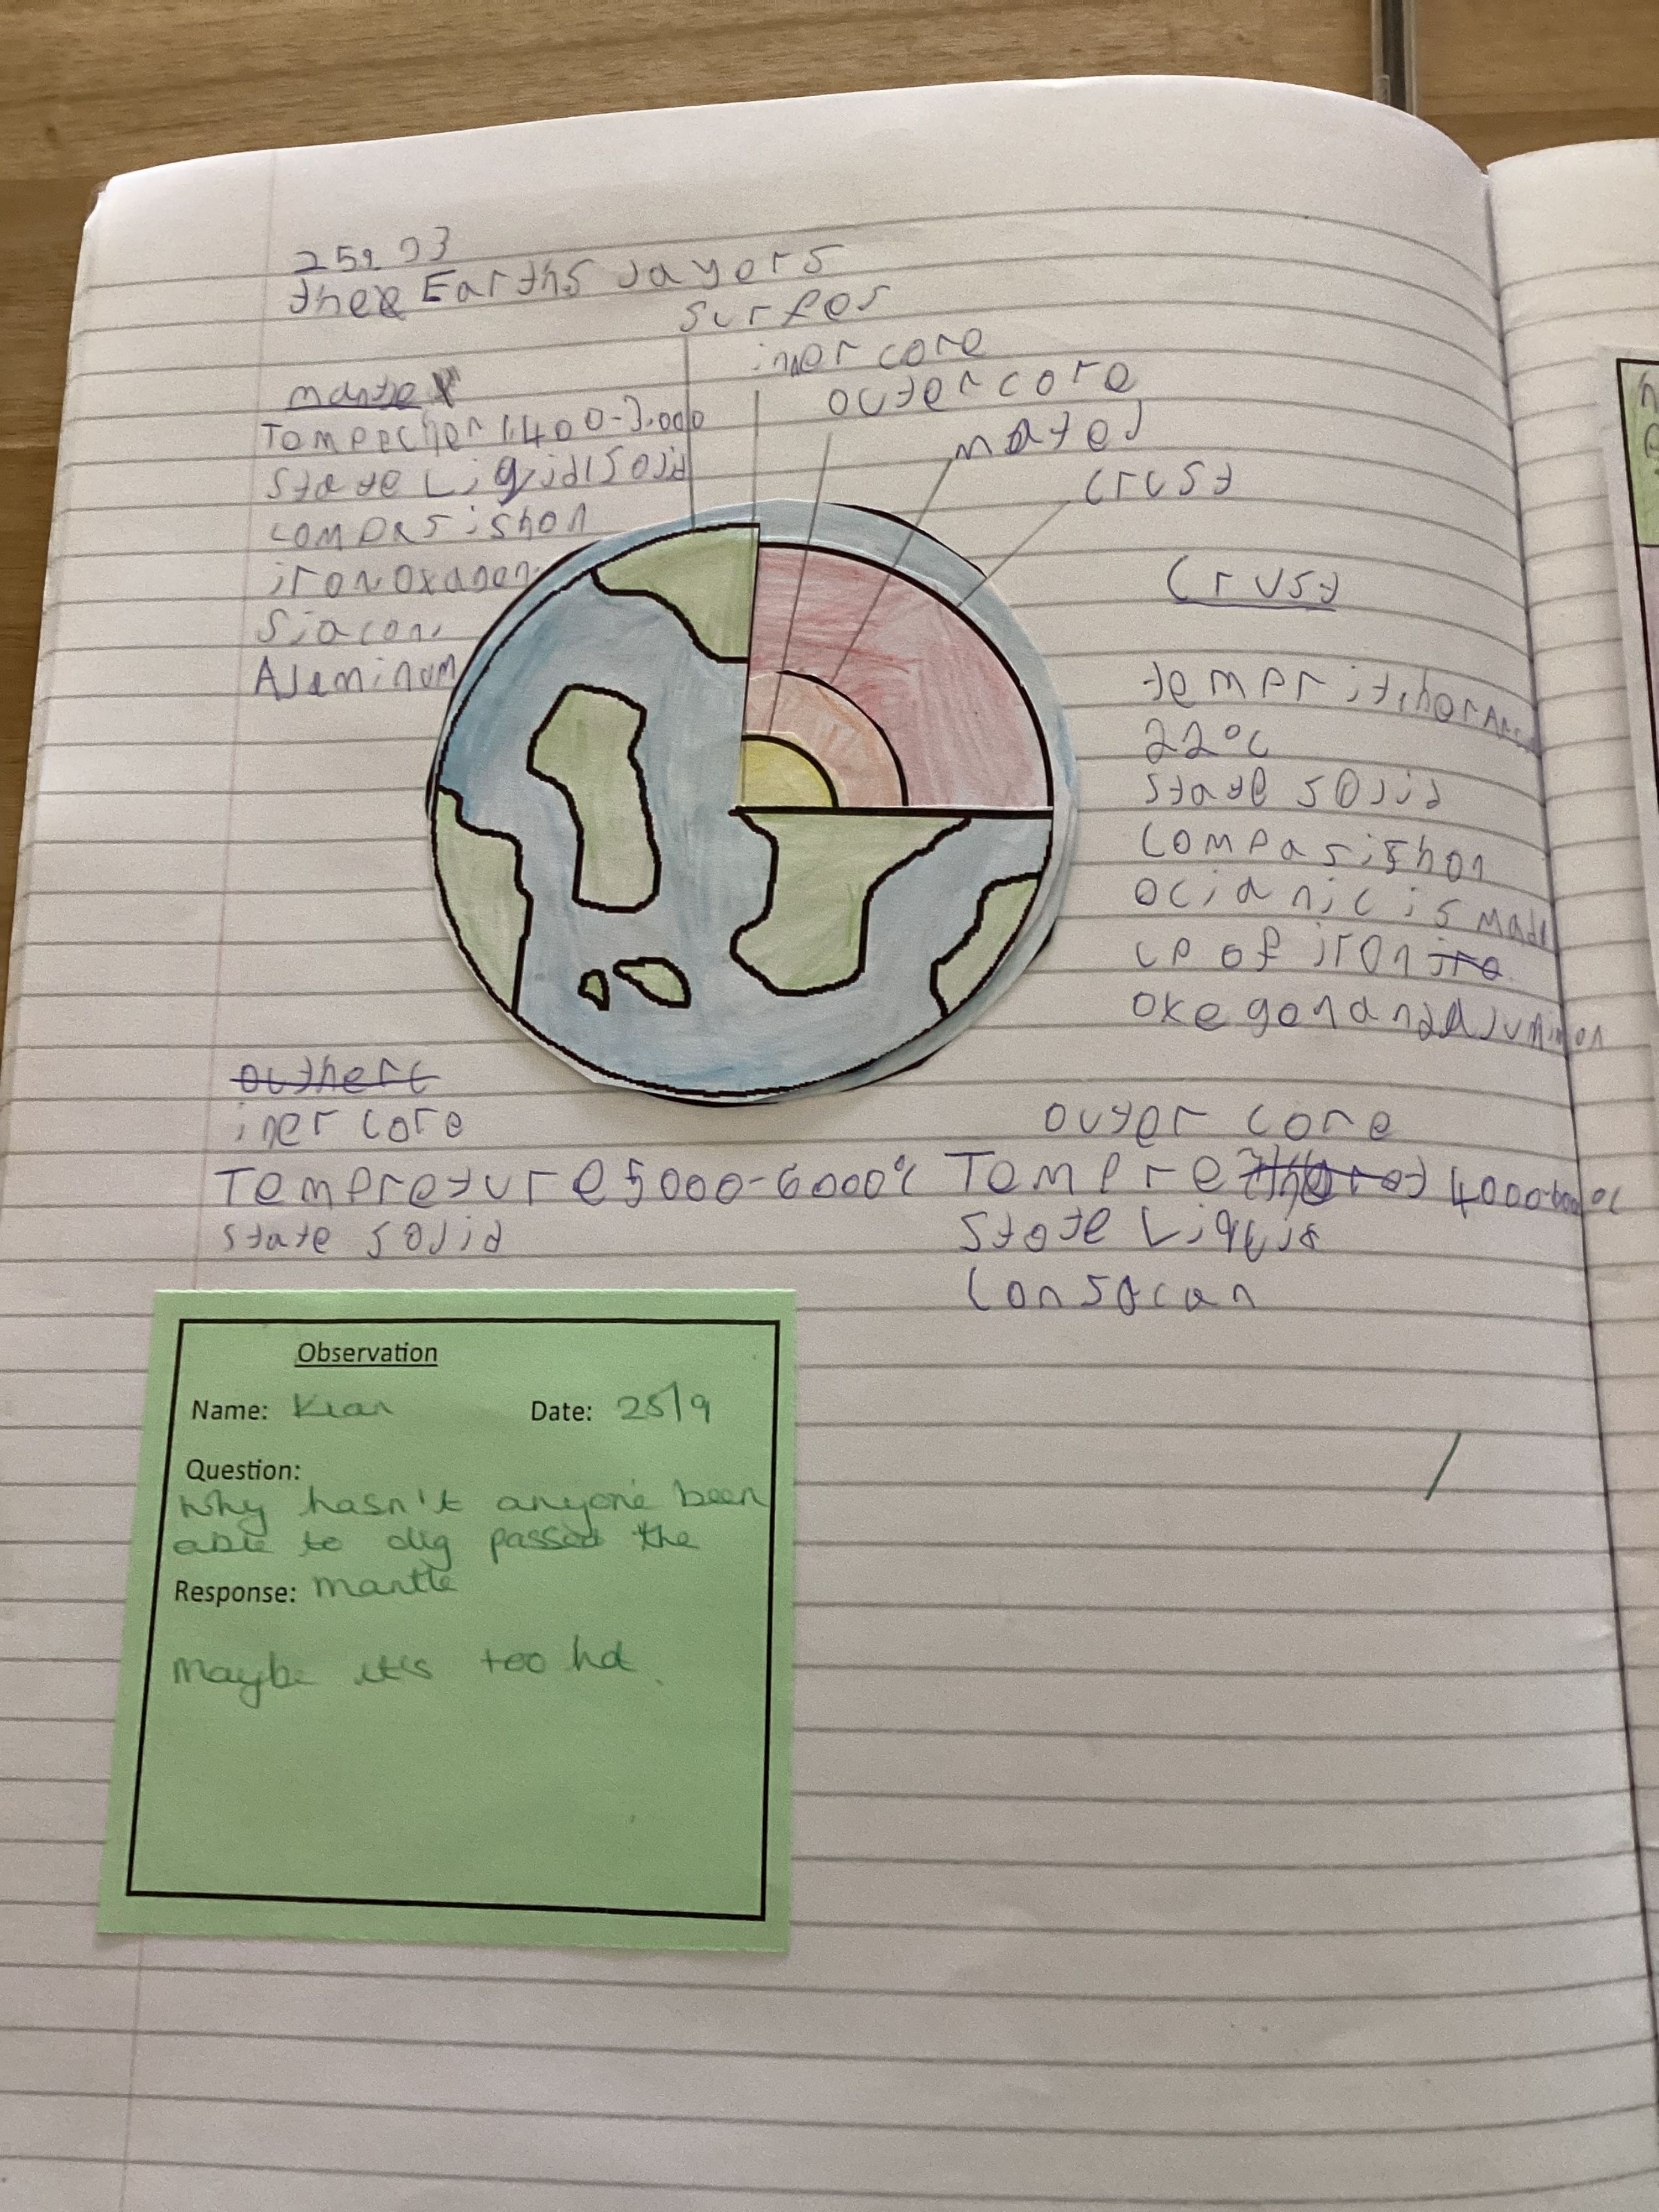 the Earths layers
surfes
iner core
outer core
matel
crust
mantle
Tempecher 1.400-3.000
State Liqid/Solid
compasishon
iron oxagen
Siacon,
Aluminum
Crust
tempritcher
22°c
state solid
compasishon
ocianic is made
up of iron
oxegon and aluminon
iner core
Tempreture 5000-6000°c
state solid
outer core
Tempre 4000-6000°c
State Liquid
Observation
Name: Kian Date: 25/9
Question:
Why hasn't anyone been
able to dig passed the
Response: mantle
Maybe it's too hot.